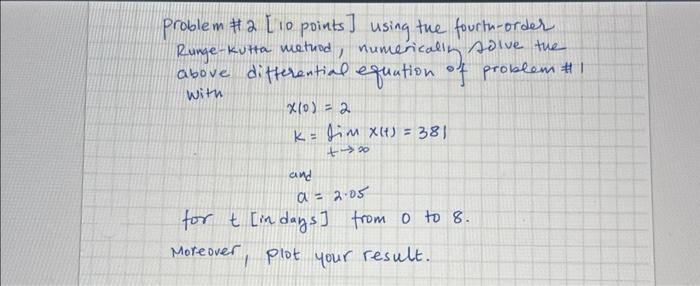 Problem #2 [10 points] using the fourth-order
Runge-Kutta method, numerically solve the
above differential equation of problem #1
with
x(0) = 2
K = lim x(t) = 381
t→∞
and
a = 2.05
for t [in days] from 0 to 8.
Moreover, plot your result.